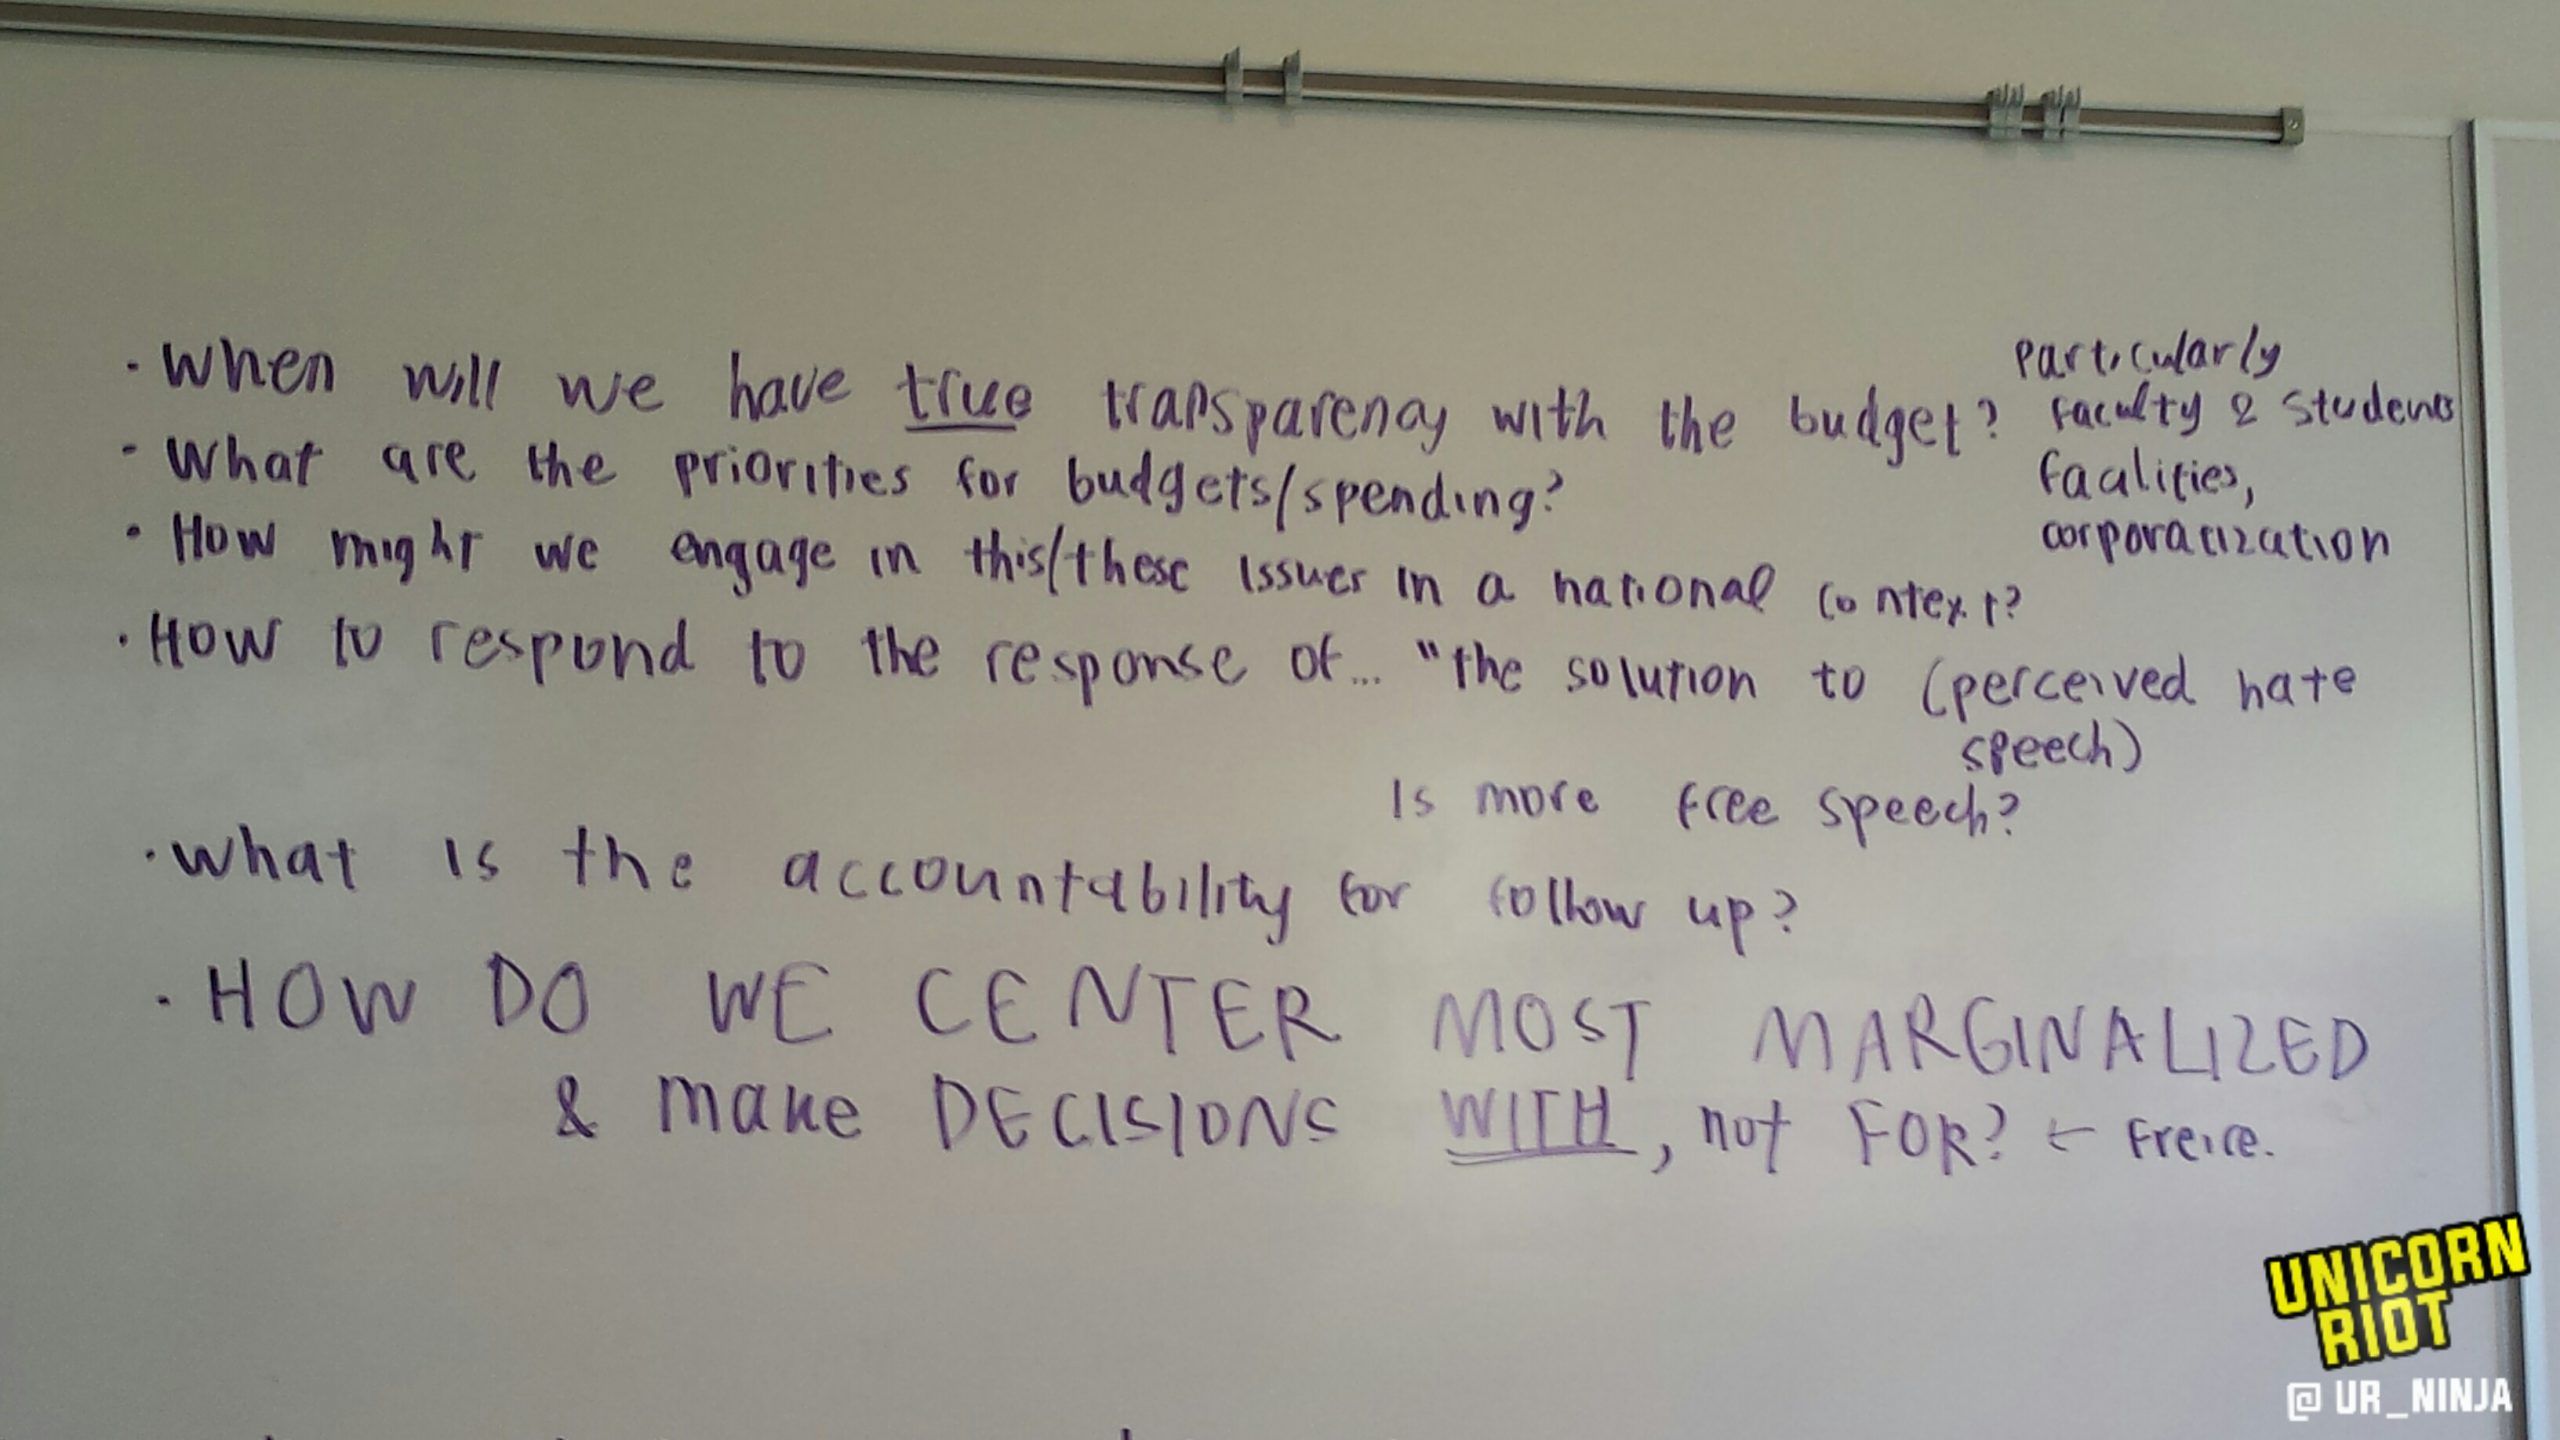 · When will we have true transparency with the budget?
particularly
faculty & students
facilities,
corporatization
· What are the priorities for budgets/spending?
· How might we engage in this/these issues in a national context?
· How to respond to the response of... "the solution to (perceived hate
speech)
is more free speech?
· what is the accountability for follow up?
· HOW DO WE CENTER MOST MARGINALIZED
& make DECISIONS WITH, not FOR? ← Freire.
UNICORN
RIOT
@UR_NINJA